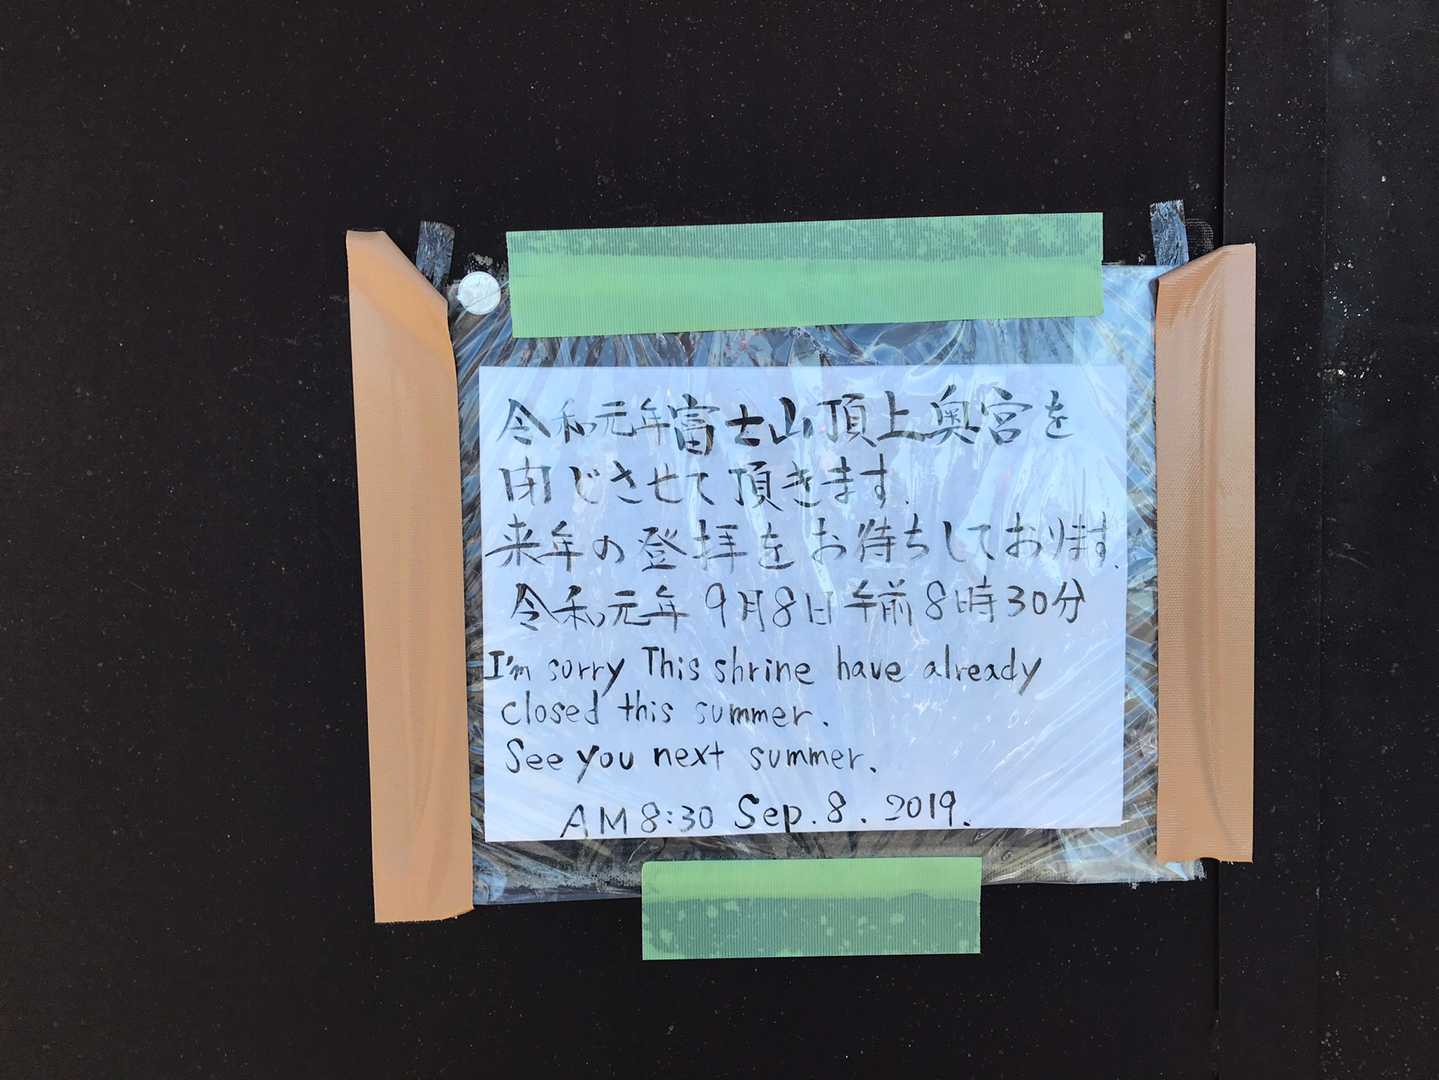 令和元年富士山頂上奥宮を
閉じさせて頂きます.
来年の登拝をお待ちしております.
令和元年9月8日午前8時30分
I'm sorry This shrine have already
closed this summer.
See you next summer.
AM8:30 Sep.8.2019.